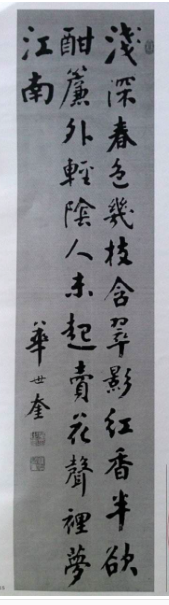 淺深春色幾枝含翠影紅香半欲
酣簾外輕陰人未起賣花聲裡夢
江南
華世奎